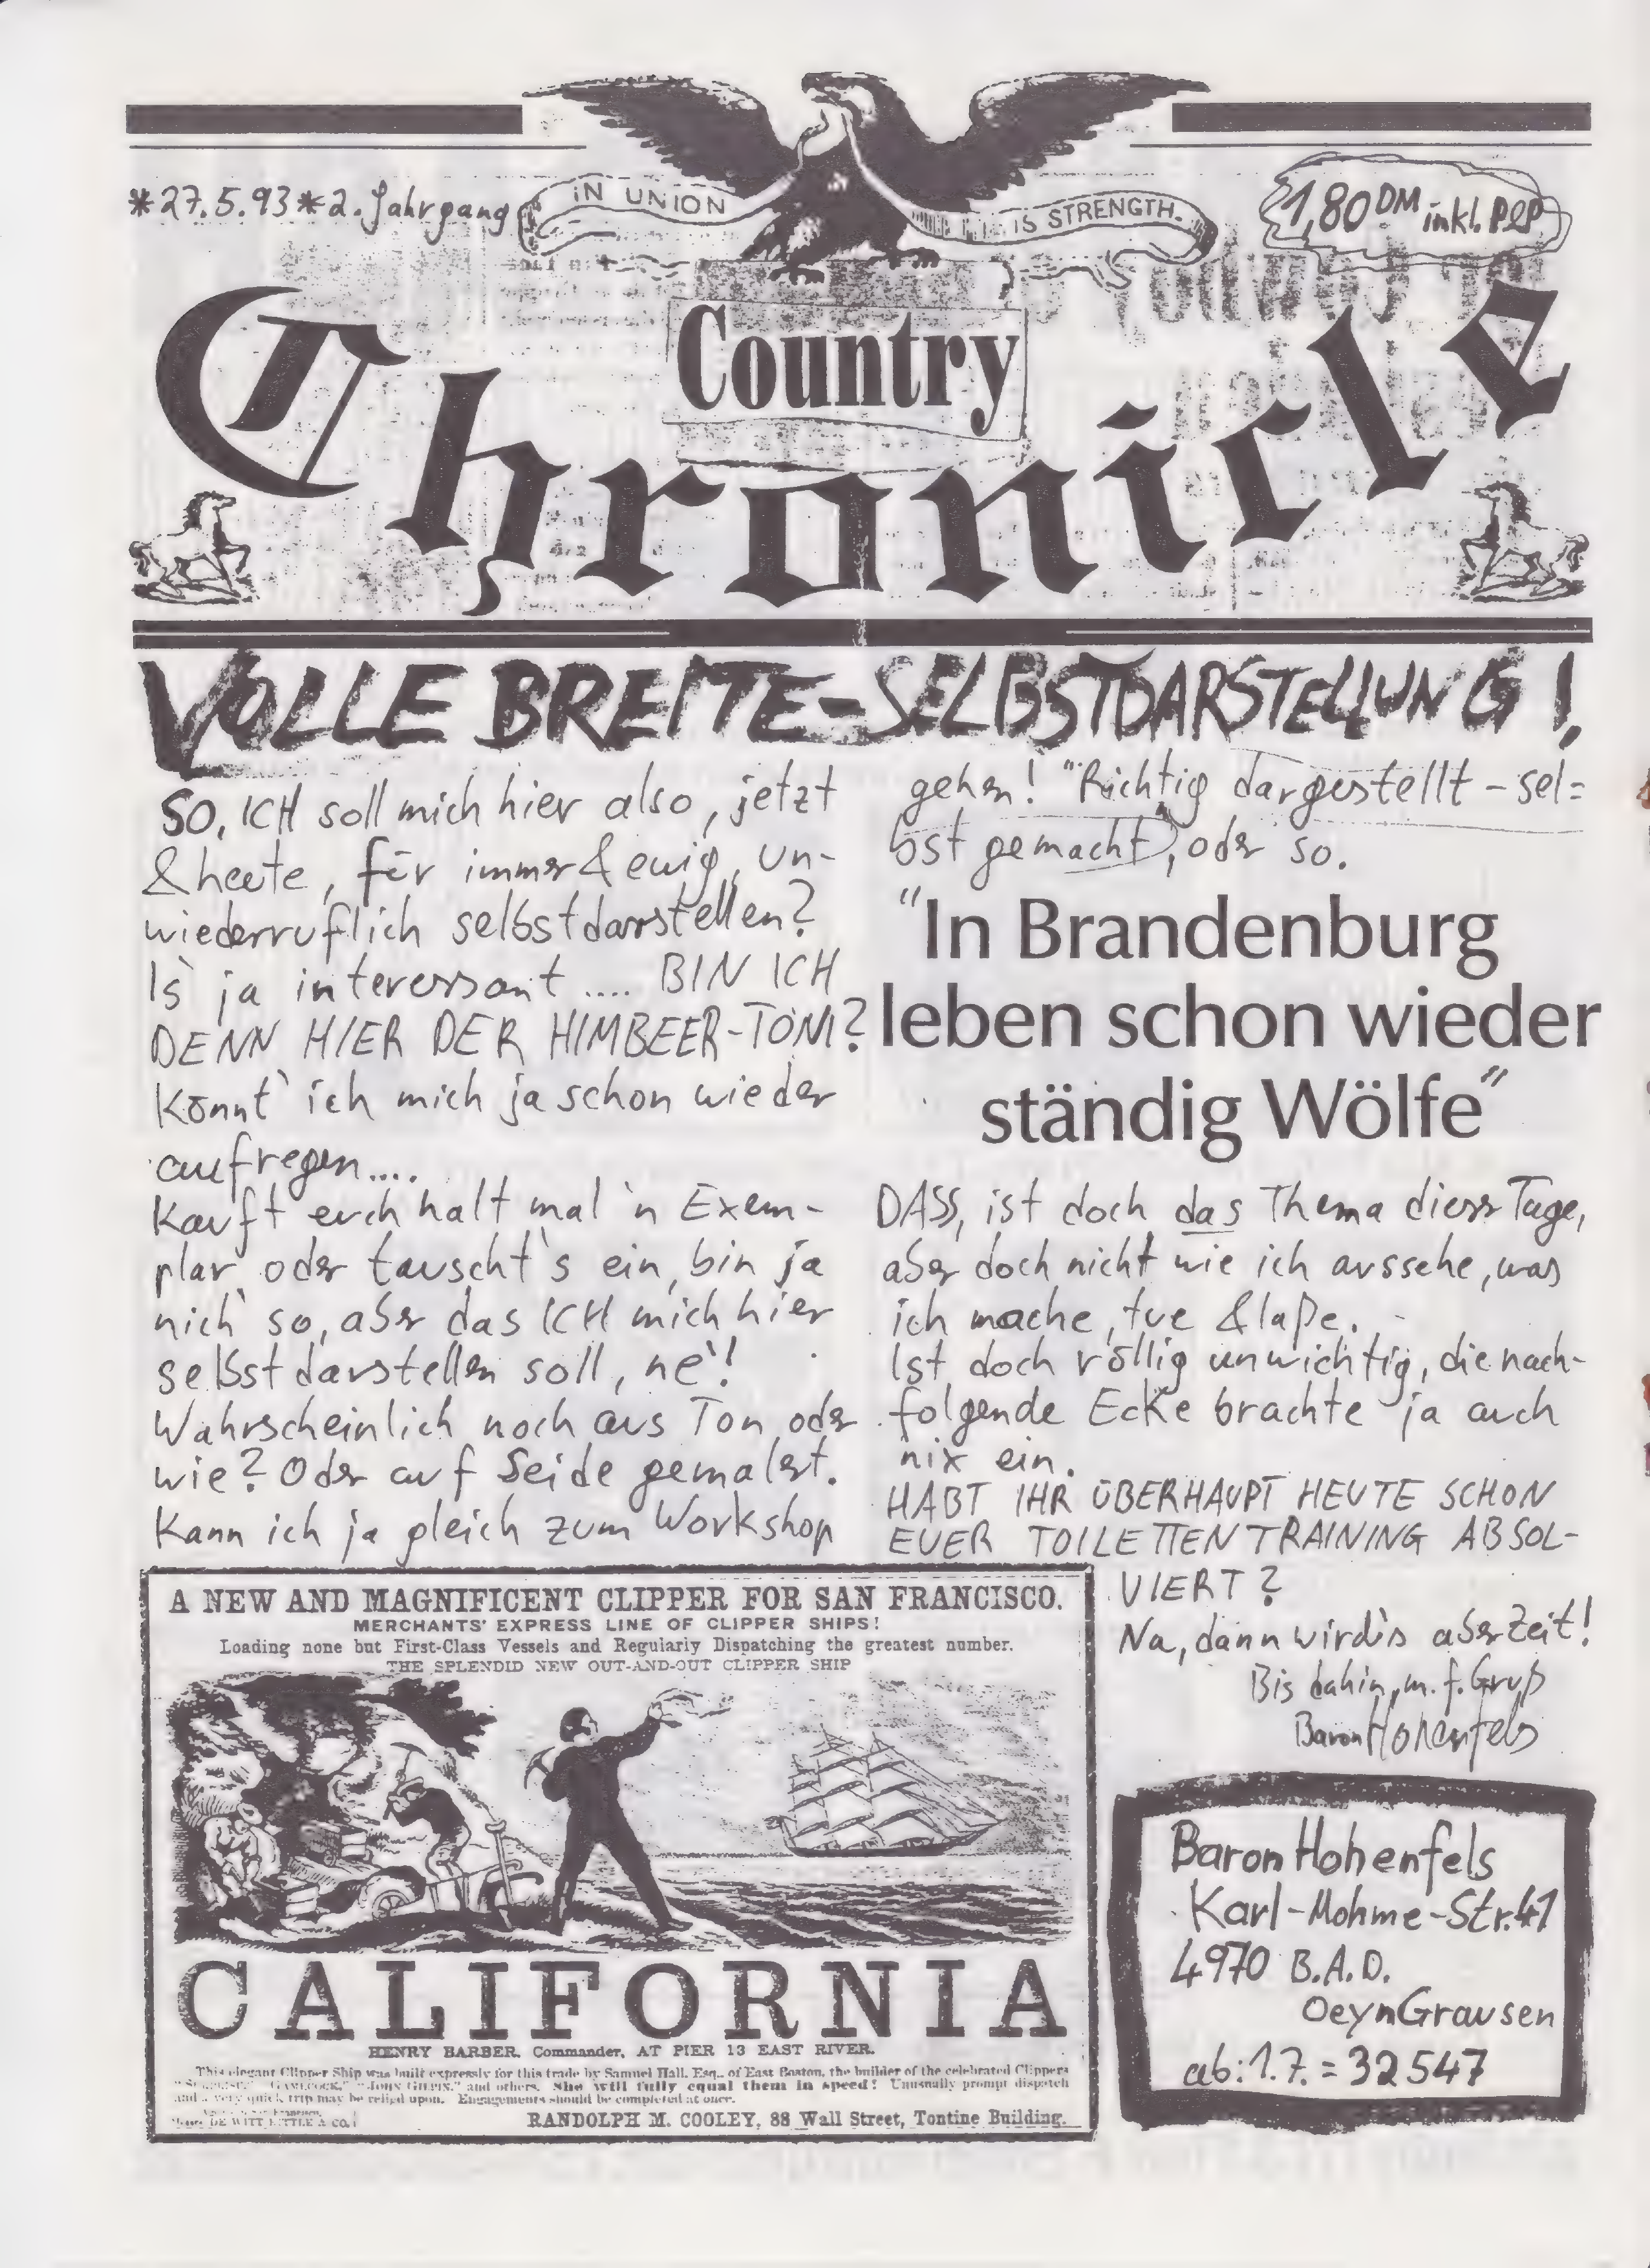 *27.5.93*2. Jahrgang
IN UNION IS STRENGTH.
1,80 DM inkl. P&P
Country
Chronicle
VOLLE BREITE-SELBSTDARSTELLUNG!
SO, ICH soll mich hier also, jetzt
& heute, für immer & ewig, un-
wiederruflich selbstdarstellen?
Is` ja interessant .... BIN ICH
DENN HIER DER HIMBEER-TONI?
Könnt` ich mich ja schon wieder
aufregen....
Kauft euch halt mal `n Exem-
plar oder tauscht`s ein, bin ja
nich` so, aber das ICH mich hier
selbstdarstellen soll, ne`!
Wahrscheinlich noch aus Ton oder
wie? Oder auf Seide gemalert.
Kann ich ja gleich zum Workshop
gehen! "Richtig dargestellt - sel=
bst gemacht", oder so.
"In Brandenburg
leben schon wieder
ständig Wölfe"
DASS, ist doch das Thema dieser Tage,
aber doch nicht wie ich aussehe, was
ich mache, tue & laße.
Ist doch völlig unwichtig, die nach-
folgende Ecke brachte ja auch
nix ein.
HABT IHR ÜBERHAUPT HEUTE SCHON
EUER TOILETTENTRAINING ABSOL-
VIERT?
Na, dann wird`s aber Zeit!
Bis dahin, m. f. Gruß
Baron Hohenfels
A NEW AND MAGNIFICENT CLIPPER FOR SAN FRANCISCO.
MERCHANTS' EXPRESS LINE OF CLIPPER SHIPS!
Loading none but First-Class Vessels and Regularly Dispatching the greatest number.
THE SPLENDID NEW OUT-AND-OUT CLIPPER SHIP
CALIFORNIA
HENRY BARBER, Commander, AT PIER 13 EAST RIVER.
This elegant Clipper Ship was built expressly for this trade by Samuel Hall, Esq., of East Boston, the builder of the celebrated Clippers
"GAMECOCK," "JOHN GILPIN," and others. She will fully equal them in speed! Unusually prompt dispatch
and a very quick trip may be relied upon. Engagements should be completed at once.
DE WITT KITTLE & CO.
RANDOLPH M. COOLEY, 88 Wall Street, Tontine Building.
Baron Hohenfels
Karl-Mohme-Str.41
4970 B.A.D.
OeynGrausen
ab: 1.7. = 32547